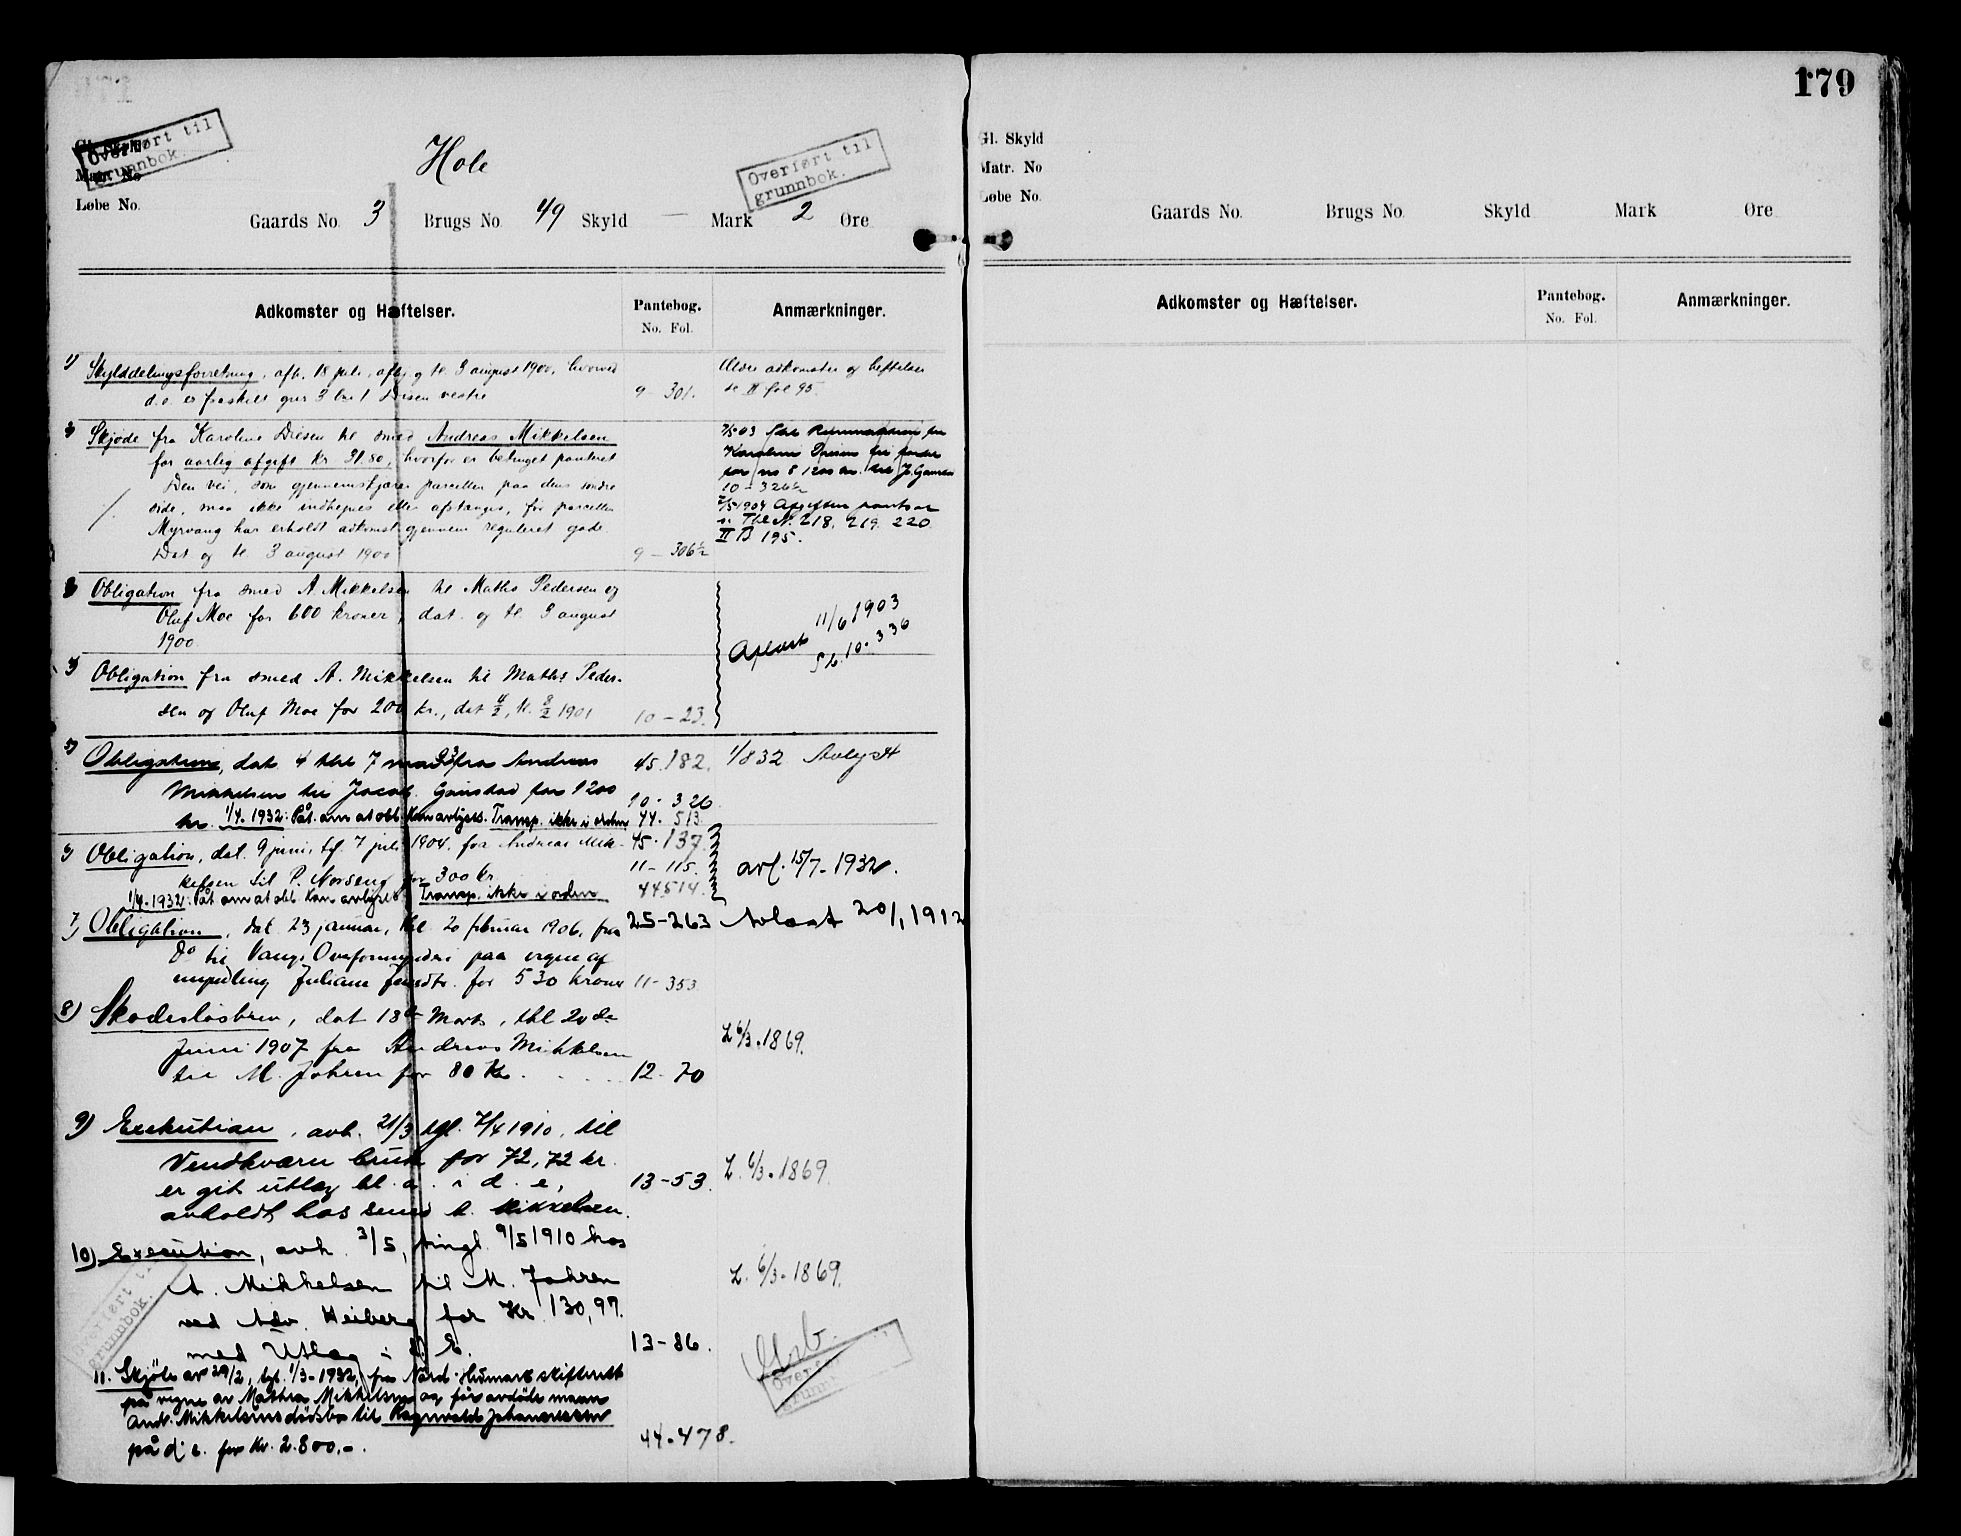 179
Overført til
grunnbok.
Hole
Overført til
grunnbok.
Gl. Skyld
Matr. No
Løbe No.
Gaards No. 3 Brugs No 49 Skyld — Mark 2 Øre
Gl. Skyld
Matr. No
Løbe No.
Gaards No. Brugs No. Skyld Mark Øre
Adkomster og Hæftelser.
Pantebog.
No. Fol.
Anmærkninger.
Adkomster og Hæftelser.
Pantebog.
No. Fol.
Anmærkninger.
1) Skylddelingsforretning, afh. 18 juli, afhj. og tl. 3 august 1900, hvorved
d.e. er fraskilt gnr 3 bnr 1 Disen vestre 9 - 301.
Ældre adkomster og heftelser
se II fol 95.
2) Skjøde fra Karoline Disen til smed Andreas Mikkelsen
for aarlig afgift kr 31.80, hvorfor er betinget panteret
Den vei, som gjennemskjærer parcellen paa dens søndre
side, maa ikke indhegnes eller afstænges, før parcellen
Myrvang har erholdt adkomst gjennem reguleret gade
Dat og tl. 3 august 1900 9 - 306½
Karoline Disen
for no 5 1200 kr. til J. Gaustad
10 - 326½
1904 Afgiften pantsat
se Tbl N. 218, 219. 220
II B 195.
Obligation fra smed A Mikkelsen til Mathis Pedersen og
Oluf Moe for 600 kroner, dat. og tl. 3 august
1900.
Obligation fra smed A. Mikkelsen til Mathis Peder-
sen og Oluf Moe for 200 kr., dat 4/2, tl. 8/2 1901 10 - 23.
Aflæst 11/6 1903
10. 336
5) Obligation, dat 4 tbl 7 mai 03 fra Andreas 45. 182.
Mikkelsen til Jacob Gaustad for 1200 10. 326
kr. 1/4. 1932: Påt. om at obl. kan avlyses. Transp. ikke i orden 44. 513
1/8 32 Avlyst
6) Obligation, dat. 9 juni, tl. 7 juli 1904, fra Andreas Mik- 45. 137
kelsen til P. Norseng for 300 kr 11 - 115.
1/4. 1932: Påt om at obl. kan avlyses. Transp. ikke i orden 44 514.
avl. 15/7 - 1932.
7) Obligation, dat 23 januar, tbl. 20 februar 1906, fra 25 - 263
Do til Vangs Overformynderi paa vegne af
umyndling Juliane for 530 kroner 11 - 353
Avlæst 20/1, 1912
8) Skadesløsbrev, dat 18de Marts, tbl 20de
Juni 1907 fra Andreas Mikkelsen
til M. Johren for 80 Kr. 12 - 70
L 6/3. 1869.
9) Exekution, avh. 21/3 tgl. 7/4 1910, til
Vendkværn bruk for 72,72 kr.
er git utlæg bl. a. i d. e, 13 - 53.
avholdt hos smed A. Mikkelsen.
L. 6/3. 1869
10) Execution, avh. 3/5, tingl. 9/5 1910 hos
A. Mikkelsen til M. Johren
ved Adv. Heiberg for Kr. 130,97.
med Utlæg i d. E. 13 - 86.
L. 6/3. 1869.
Overført til
grunnbok.
11. Skjøte av 29/2, tgl. 1/3 - 1932, fra Nord-Hedmark skifterett
på vegne av Mathea Mikkelsen og før avdøde mann
Andr. Mikkelsens dødsbo til Ragnvald Johannessen
på d. e. for kr. 2.800.-. 44 - 478.